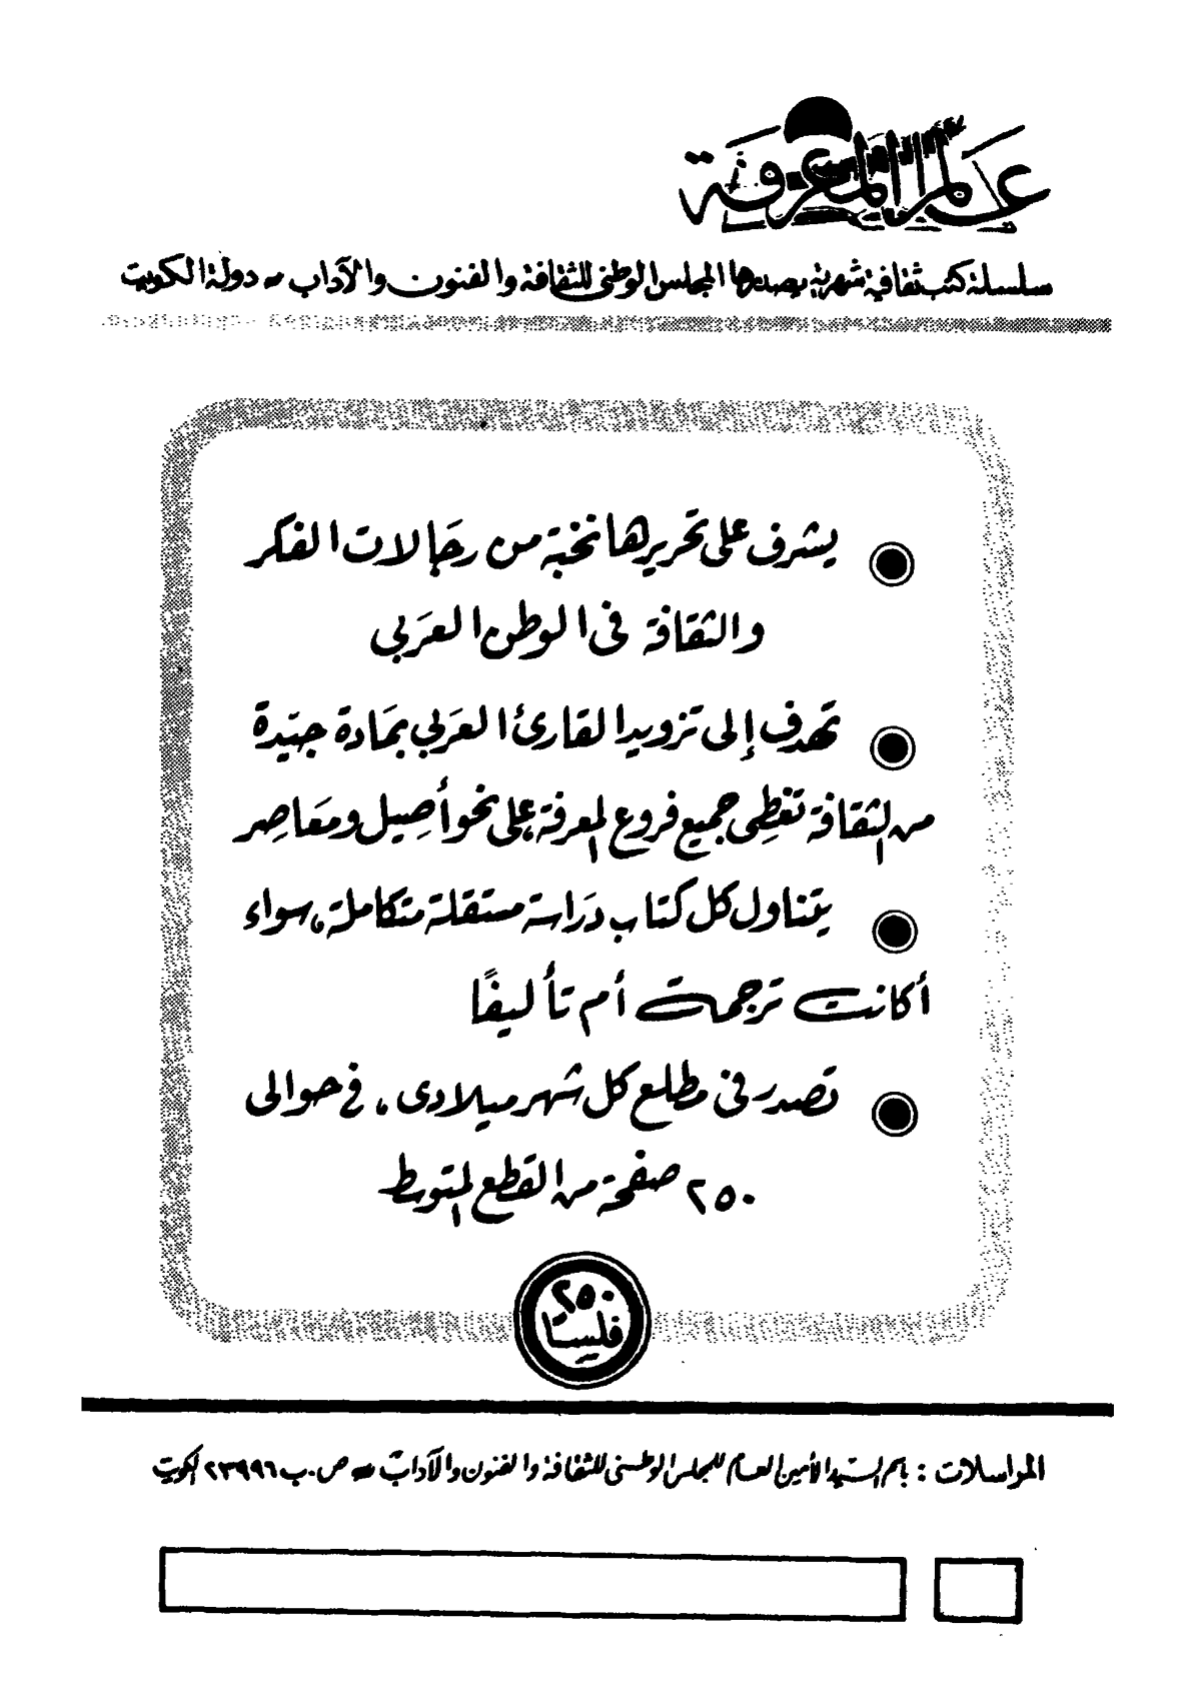 عالم المعرفة
سلسلة كتب ثقافية شهرية يصدرها المجلس الوطني للثقافة والفنون والآداب - دولة الكويت
يشرف على تحريرها نخبة من رجالات الفكر
والثقافة في الوطن العربي
تهدف إلى تزويد القارئ العربي بمادة جيّدة
من الثقافة تغطي جميع فروع المعرفة، على نحو أصيل ومعاصر
يتناول كل كتاب دراسة مستقلة متكاملة، سواء
أكانت ترجمة أم تأليفًا
تصدر في مطلع كل شهر ميلادى، في حوالى
٢٥٠ صفحة من القطع المتوسط
٢٥٠
فلسا
المراسلات : باسم السيد الأمين العام للمجلس الوطني للثقافة والفنون والآداب - ص.ب ٢٣٩٩٦ الكويت